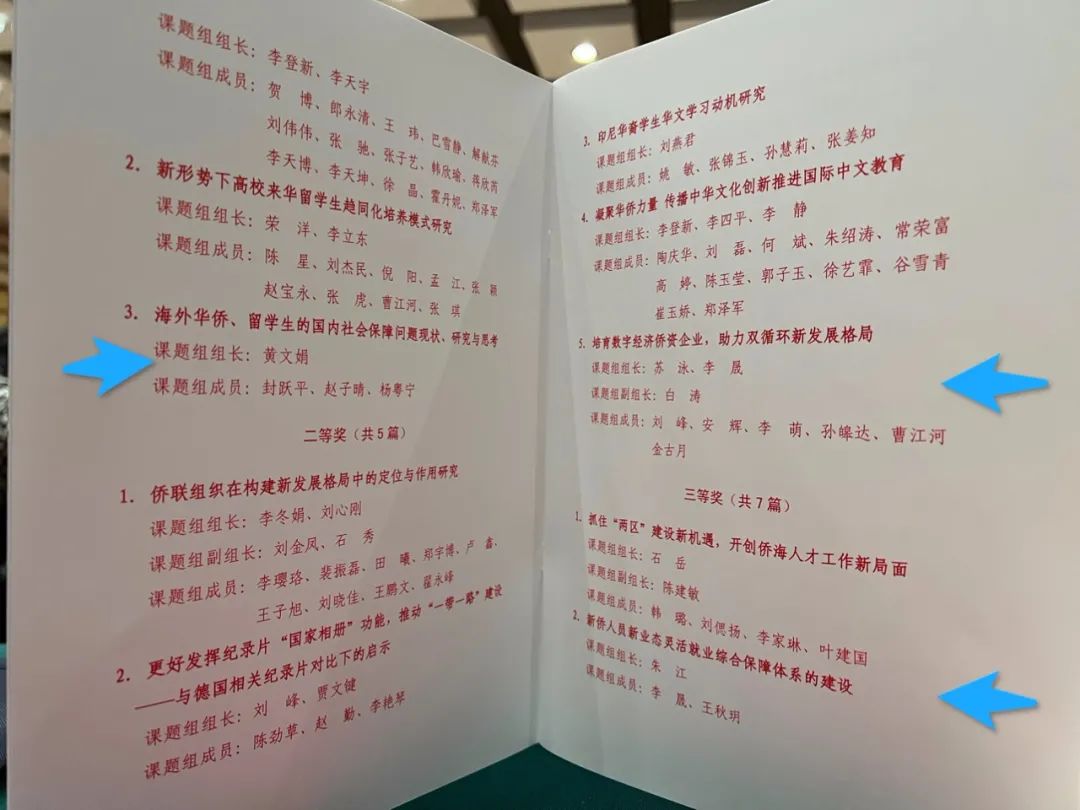 课题组组长：李登新、李天宇
课题组成员：贺　博、郎永清、王　玮、巴雪静、解献芬
刘伟伟、张　驰、张子艺、韩欣瑜、蒋欣芮
李天博、李天坤、徐　晶、霍丹妮、郑泽军
2. 新形势下高校来华留学生趋同化培养模式研究
课题组组长：荣　洋、李立东
课题组成员：陈　星、刘杰民、倪　阳、孟　江、张　颖
赵宝永、张　虎、曹江河、张　琪
3. 海外华侨、留学生的国内社会保障问题现状、研究与思考
课题组组长：黄文娟
课题组成员：封跃平、赵子晴、杨粤宁
二等奖（共5篇）
1. 侨联组织在构建新发展格局中的定位与作用研究
课题组组长：李冬娟、刘心刚
课题组副组长：刘金凤、石　秀
课题组成员：李璎珞、裴振磊、田　曦、郑宇博、卢　鑫、
王子旭、刘晓佳、王鹏文、翟永峰
2. 更好发挥纪录片“国家相册”功能，推动“一带一路”建设
——与德国相关纪录片对比下的启示
课题组组长：刘　峰、贾文键
课题组成员：陈劲草、赵　勤、李艳琴
3. 印尼华裔学生华文学习动机研究
课题组组长：刘燕君
课题组成员：姚　敏、张锦玉、孙慧莉、张姜知
4. 凝聚华侨力量 传播中华文化创新推进国际中文教育
课题组组长：李登新、李四平、李　静
课题组成员：陶庆华、刘　磊、何　斌、朱绍涛、常荣富
高　婷、陈玉莹、郭子玉、徐艺霏、谷雪青
崔玉娇、郑泽军
5. 培育数字经济侨资企业，助力双循环新发展格局
课题组组长：苏　泳、李　晟
课题组副组长：白　涛
课题组成员：刘　峰、安　辉、李　萌、孙皞达、曹江河
金古月
三等奖（共7篇）
1. 抓住“两区”建设新机遇，开创侨海人才工作新局面
课题组组长：石　岳
课题组副组长：陈建敏
课题组成员：韩　璐、刘偲扬、李家琳、叶建国
2. 新侨人员新业态灵活就业综合保障体系的建设
课题组组长：朱　江
课题组成员：李　晟、王秋玥